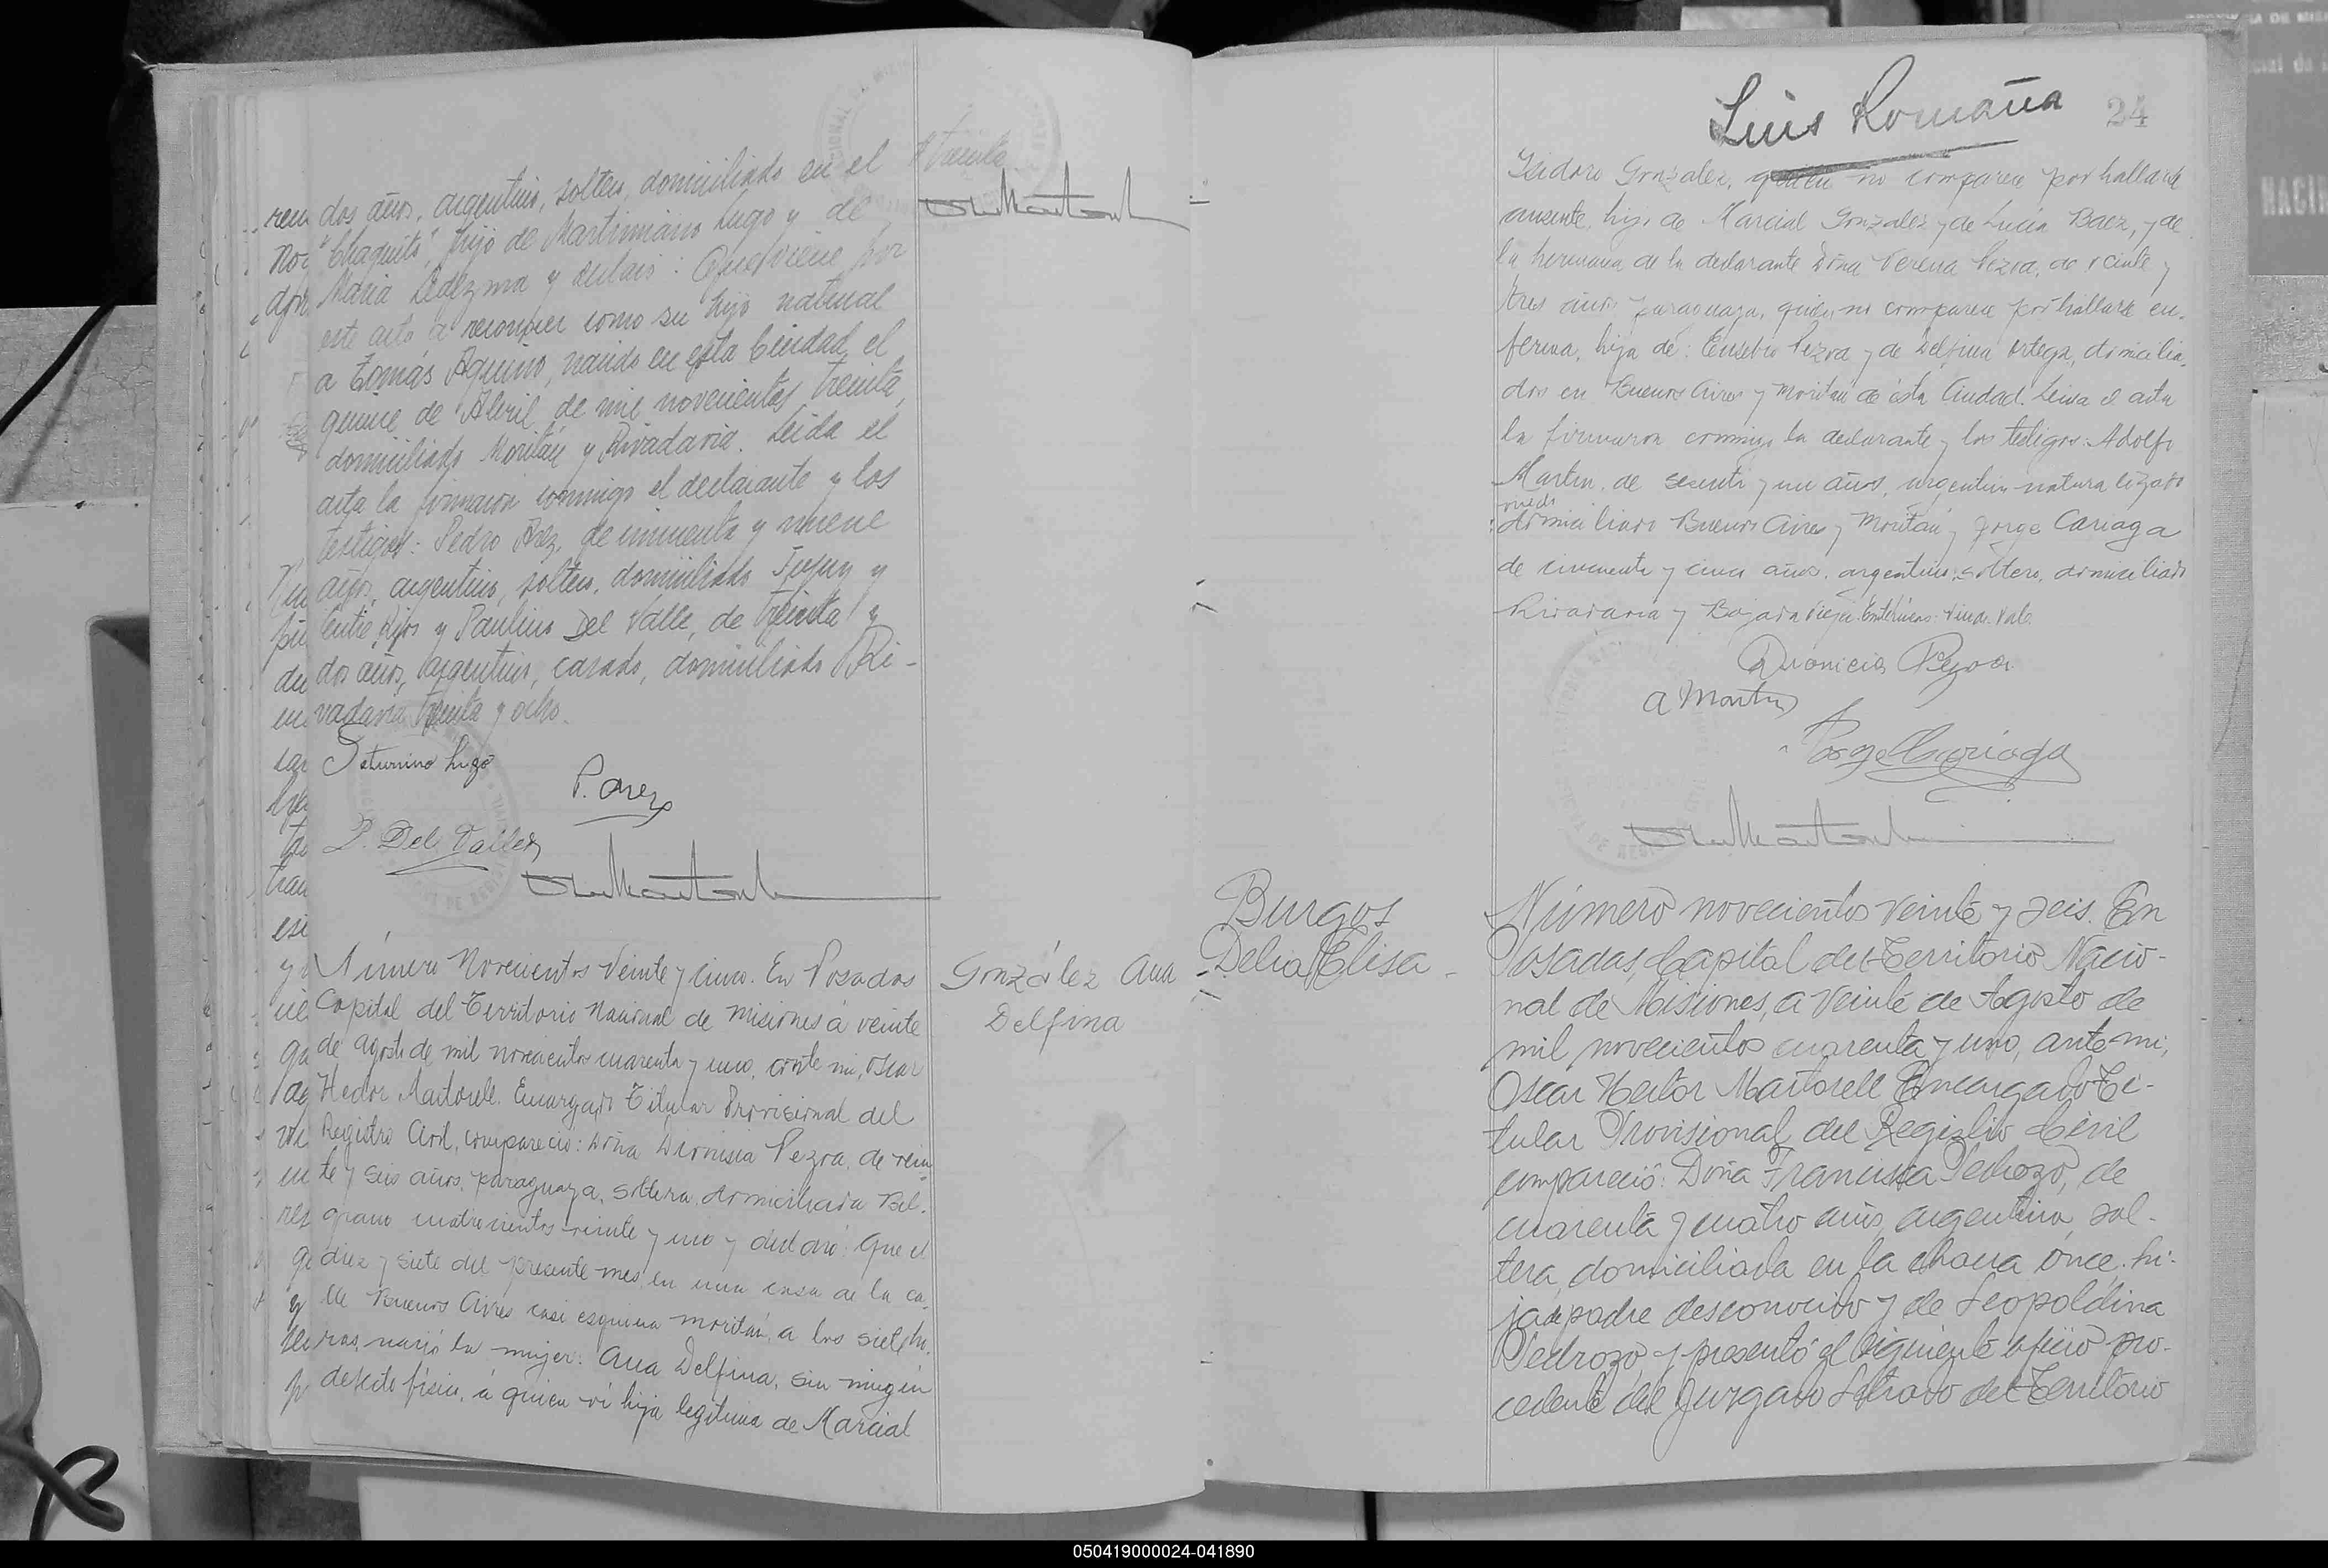 dos años, argentino, soltero, domiciliado en el
"Chaquito", hijo de Martiniano Lugo y de
Maria Ledezma y declaró: Que viene por
este acto a reconocer como su hijo natural
a Tomás Aquino, nacido en esta Ciudad, el
quince de Abril de mil novecientos treinta,
domiciliado Moritán y Rivadavia. Leida el
acta la firmaron conmigo el declarante y los
testigos: Pedro Arez, de cincuenta y nueve
años, argentino, soltero, domiciliado Jujuy y
Entre Rios y Paulino Del Valle, de treinta y
dos años, argentino, casado, domiciliado Ri-
vadavia treinta y ocho.
Saturnino Lugo
P. Arez
P. Del Valle
treinta
Número Novecientos Veinte y cinco. En Posadas
Capital del Territorio Nacional de Misiones á veinte
de agosto de mil novecientos cuarenta y uno, ante mi, Oscar
Hector Martorell. Encargado Titular Provisional del
Registro Civil, compareció: Doña Dionisia Pezoa, de vein
te y seis años, paraguaya, soltera, domiciliada Bel-
grano cuatrocientos veinte y uno y declaró: Que el
diez y siete del presente mes en una casa de la ca-
lle Buenos Aires casi esquina moritán, a las siete ho-
ras, nació la mujer: Ana Delfina, sin ningún
defecto fisico, á quien vi hija legitima de Marcial
González Ana
Delfina
Luis Romaña
24
Isidoro Gonzalez, quien no comparece por hallarse
ausente, hijo de Marcial Gonzalez y de Lucia Baez, y de
la hermana de la declarante Doña Verena Pezoa, de veinte y
tres años, paraguaya, quien no comparece por hallarse en-
ferma, hija de: Eusebio Pezoa y de Delfina Ortega, domicilia-
dos en Buenos Aires y Moritan de ésta Ciudad. Leida el acta
la firmaron conmigo la declarante y los testigos: Adolfo
Martin, de sesenta y un años, argentino naturalizado
viudo
domiciliado Buenos Aires y Moritan y Jorge Cariaga
de cincuenta y cinco años, argentino, soltero, domiciliado
Rivadavia y Bajada vieja. Entrelineas: viudo. Vale.
Dionicia Pezoa
A Martin
Jorge Cariaga
Burgos
Delia Elisa
Número novecientos veinte y seis. En
Posadas, Capital del Territorio Nacio-
nal de Misiones, a veinte de Agosto de
mil novecientos cuarenta y uno, ante mi,
Oscar Hector Martorell Encargado Ti-
tular Provisional del Registro Civil
compareció: Doña Francisca Pedrozo, de
cuarenta y cuatro años, argentina, sol-
tera, domiciliada en la chacra once, hi-
ja de padre desconocido y de Leopoldina
Pedrozo, y presentó el siguiente oficio pro-
cedente del Juzgado Letrado del Territorio
050419000024-041890